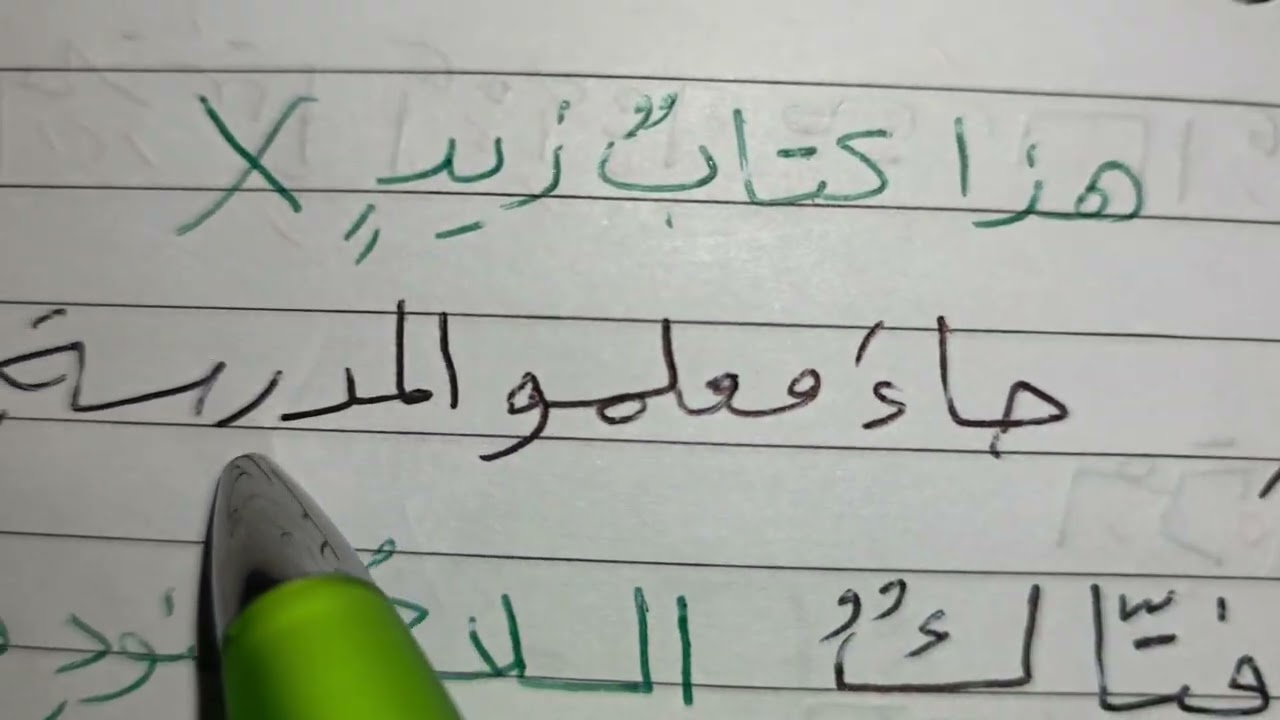 هذا كتابٌ زيدٍ X
جاءَ معلمو المدرسة
فتّاكٌ